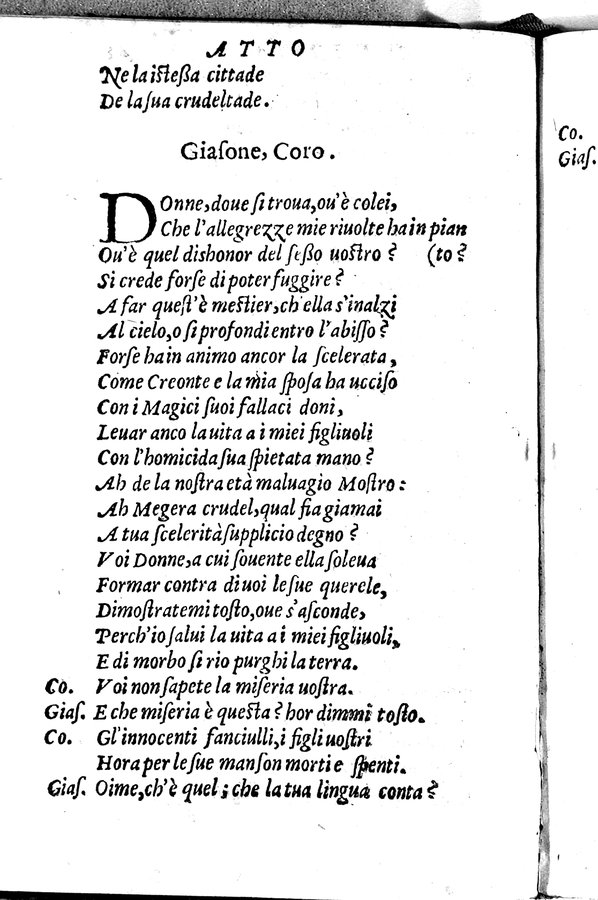 ATTO
Ne la isteßa cittade
De la ſua crudeltade.
Giaſone, Coro.
DOnne, doue ſi troua, ou'è colei,
Che l'allegrezze mie riuolte ha in pian
Ou'è quel dishonor del ſeßo uostro? (to?
Si crede forſe di poter fuggire?
A far quest'è mestier, ch ella s'inalzi
Al cielo, o ſi profondi entro l'abiſſo?
Forſe ha in animo ancor la ſcelerata,
Come Creonte e la mia ſpoſa ha ucciſo
Con i Magici ſuoi fallaci doni,
Leuar anco la uita a i miei figliuoli
Con l'homicida ſua ſpietata mano?
Ah de la nostra età maluagio Mostro:
Ah Megera crudel, qual fia giamai
A tua ſcelerità ſupplicio degno?
Voi Donne, a cui ſouente ella ſoleua
Formar contra di uoi le ſue querele,
Dimostratemi tosto, oue s'aſconde,
Perch'io ſalui la uita a i miei figliuoli,
E di morbo ſi rio purghi la terra.
Co. Voi non ſapete la miſeria uostra.
Giaſ. E che miſeria è questa? hor dimmi tosto.
Co. Gl'innocenti fanciulli, i figli uostri
Hora per le ſue man ſon morti e ſpenti.
Giaſ. Oime, ch'è quel; che la tua lingua conta?
Co.
Giaſ.